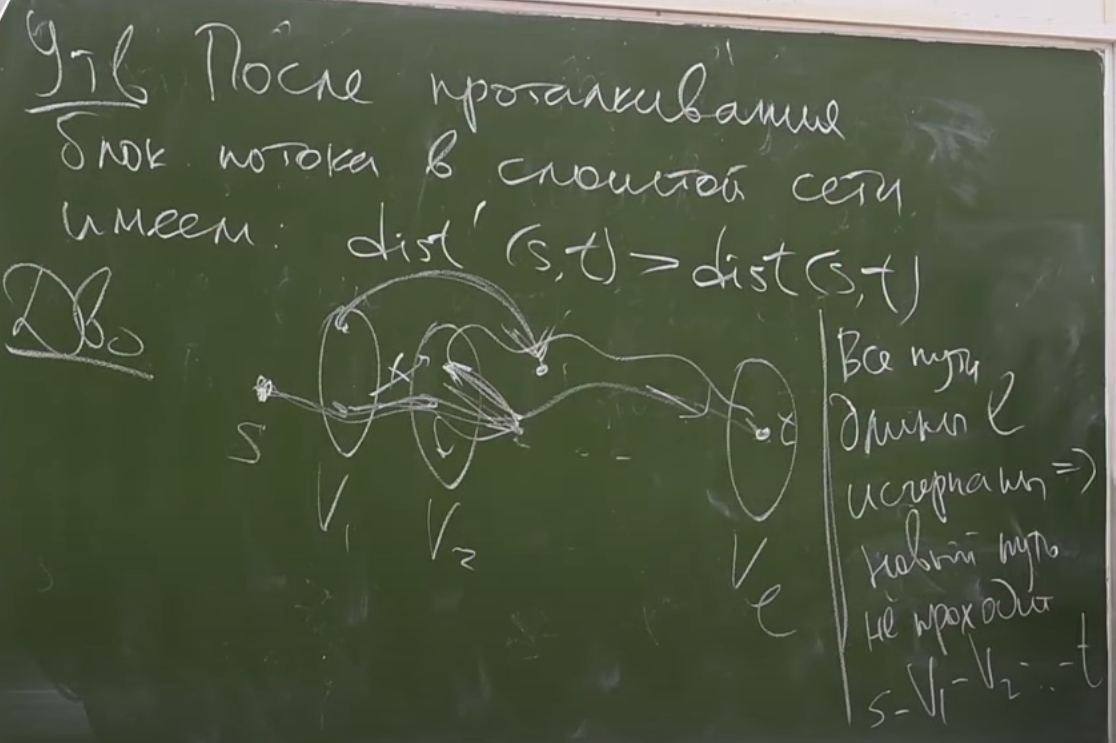 Утв После проталкивания
блок. потока в слоистой сети
имеем: dist'(s,t) > dist(s,t)
Д-во
s
V₁
V₂
...
t
V_ℓ
Все пути
длины ℓ
исчерпаны =>
новый путь
не проходит
s-V₁-V₂...-t